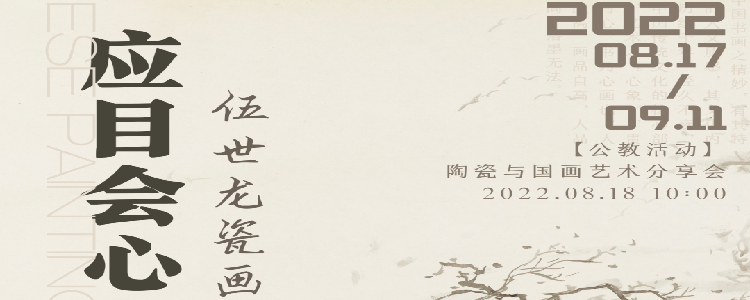 ESE PAINTING
应目会心
伍世龙瓷画
2022
08.17
/
09.11
【公教活动】
陶瓷与国画艺术分享会
2022.08.18 10:00